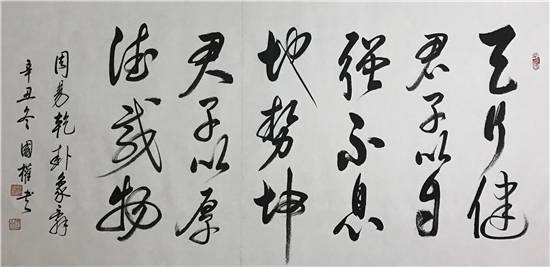 天行健
君子以自
强不息
地势坤
君子以厚
德载物
周易乾卦象辞
辛丑冬國權书